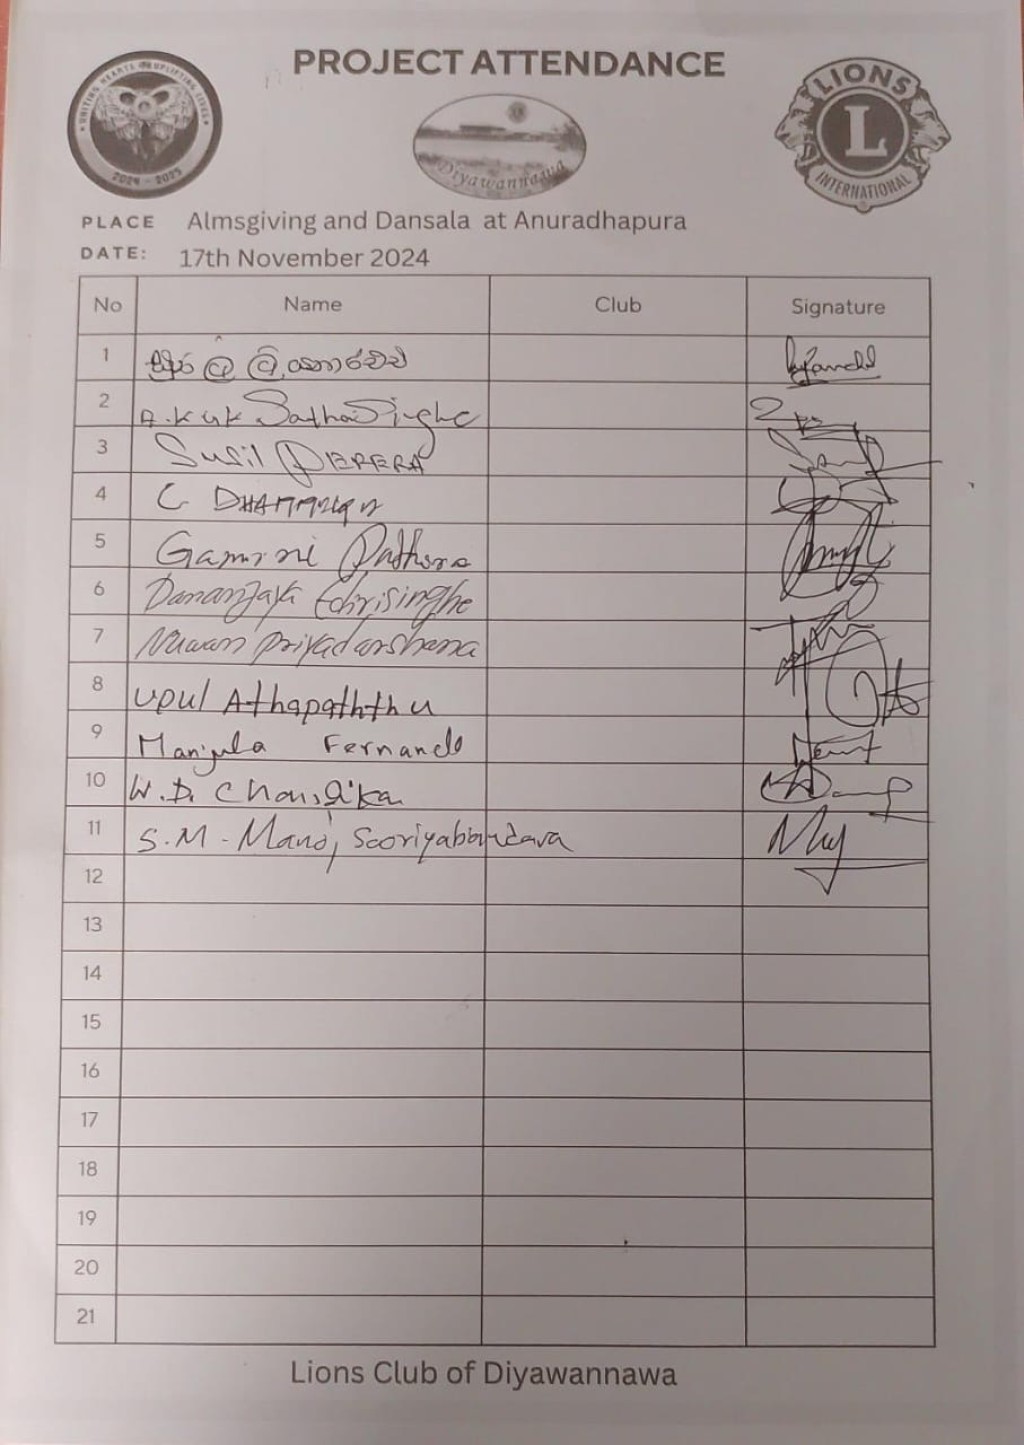 PROJECT ATTENDANCE
UNITING HEARTS UPLIFTING LIVES
2024 - 2025
Diyawannawa
LIONS
L
INTERNATIONAL
PLACE Almsgiving and Dansala at Anuradhapura
DATE: 17th November 2024
No Name Club Signature
1
2 A.K.U.K
3 Susil PERERA
4 C
5 Gamini Pathira
6 Dananjaya Edirisinghe
7 Nuwan Priyadarshana
8 Upul Athapaththu
9 Manjula Fernando
10 W.D. Chandika
11 S.M. Manoj Sooriyabandara
12
13
14
15
16
17
18
19
20
21
Lions Club of Diyawannawa